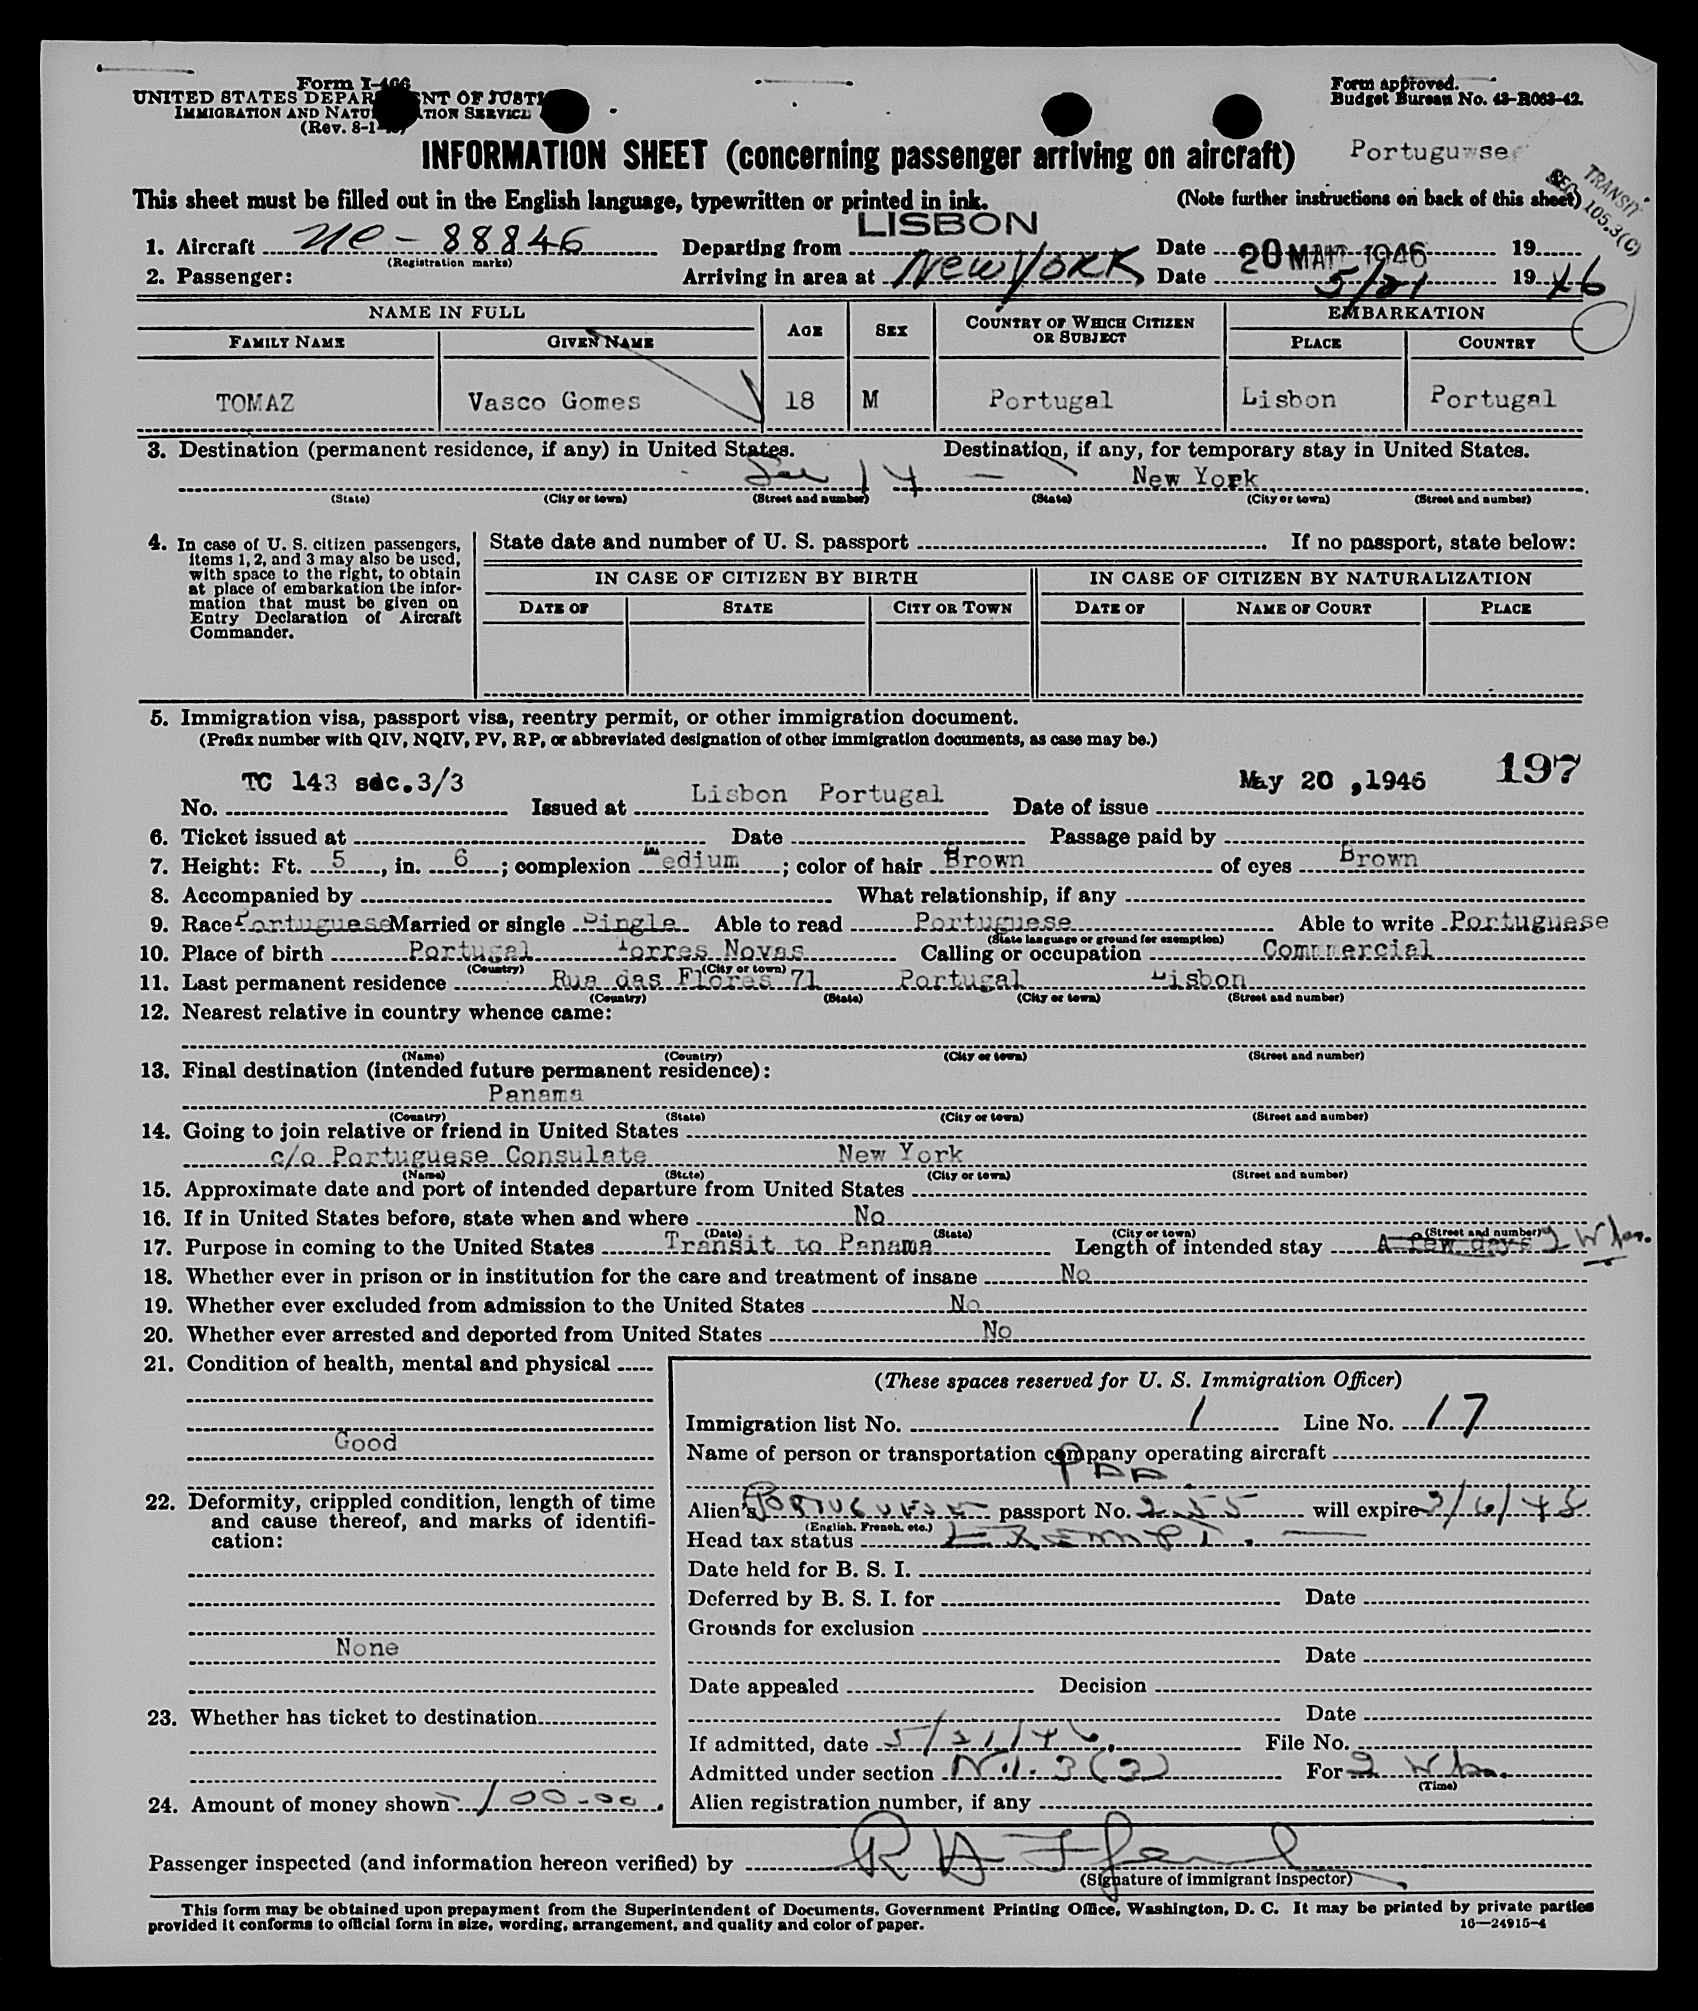 Form I-466
UNITED STATES DEPARTMENT OF JUSTICE
IMMIGRATION AND NATURALIZATION SERVICE
(Rev. 8-1-
Form approved.
Budget Bureau No. 43-R063-42.
INFORMATION SHEET (concerning passenger arriving on aircraft)
Portuguese
This sheet must be filled out in the English language, typewritten or printed in ink.
(Note further instructions on back of this sheet)
TRANSIT
SEC 105.3(C)
LISBON
1. Aircraft NC-88846 Departing from Date 20 MAI 1946 19
(Registration marks)
2. Passenger: Arriving in area at New York Date 5/21 1946
NAME IN FULL AGE SEX COUNTRY OF WHICH CITIZEN OR SUBJECT EMBARKATION
FAMILY NAME GIVEN NAME PLACE COUNTRY
TOMAZ Vasco Gomes 18 M Portugal Lisbon Portugal
3. Destination (permanent residence, if any) in United States. Destination, if any, for temporary stay in United States.
See 14 — New York
(State) (City or town) (Street and number) (State) (City or town) (Street and number)
4. In case of U. S. citizen passengers, items 1, 2, and 3 may also be used, with space to the right, to obtain at place of embarkation the information that must be given on Entry Declaration of Aircraft Commander.
State date and number of U. S. passport If no passport, state below:
IN CASE OF CITIZEN BY BIRTH IN CASE OF CITIZEN BY NATURALIZATION
DATE OF STATE CITY OR TOWN DATE OF NAME OF COURT PLACE
5. Immigration visa, passport visa, reentry permit, or other immigration document.
(Prefix number with QIV, NQIV, PV, RP, or abbreviated designation of other immigration documents, as case may be.)
197
No. TC 143 sec.3/3 Issued at Lisbon Portugal Date of issue May 20 ,1946
6. Ticket issued at Date Passage paid by
7. Height: Ft. 5, in. 6; complexion Medium; color of hair Brown of eyes Brown
8. Accompanied by What relationship, if any
9. Race Portuguese Married or single Single Able to read Portuguese Able to write Portuguese
(State language or ground for exemption)
10. Place of birth Portugal Torres Novas Calling or occupation Commercial
(Country) (City or town)
11. Last permanent residence Rua das Flores 71 Portugal Lisbon
(Country) (State) (City or town) (Street and number)
12. Nearest relative in country whence came:
(Name) (Country) (City or town) (Street and number)
13. Final destination (intended future permanent residence):
Panama
(Country) (State) (City or town) (Street and number)
14. Going to join relative or friend in United States
c/o Portuguese Consulate New York
(Name) (State) (City or town) (Street and number)
15. Approximate date and port of intended departure from United States
16. If in United States before, state when and where No
(Date) (State) (City or town) (Street and number)
17. Purpose in coming to the United States Transit to Panama Length of intended stay A few days 2 Wks.
18. Whether ever in prison or in institution for the care and treatment of insane No
19. Whether ever excluded from admission to the United States No
20. Whether ever arrested and deported from United States No
21. Condition of health, mental and physical
Good
22. Deformity, crippled condition, length of time and cause thereof, and marks of identification:
None
23. Whether has ticket to destination
24. Amount of money shown 100.00
(These spaces reserved for U. S. Immigration Officer)
Immigration list No. 1 Line No. 17
Name of person or transportation company operating aircraft
PAA.
Alien's Portuguese passport No. 255 will expire
(English, French, etc.)
Head tax status Exempt.
Date held for B. S. I.
Deferred by B. S. I. for Date
Grounds for exclusion
Date
Date appealed Decision
Date
If admitted, date 5/21/46. File No.
Admitted under section 3(3) For 2 Wks.
(Time)
Alien registration number, if any
Passenger inspected (and information hereon verified) by
(Signature of immigrant inspector)
This form may be obtained upon prepayment from the Superintendent of Documents, Government Printing Office, Washington, D. C. It may be printed by private parties
provided it conforms to official form in size, wording, arrangement, and quality and color of paper.
16—24915-4